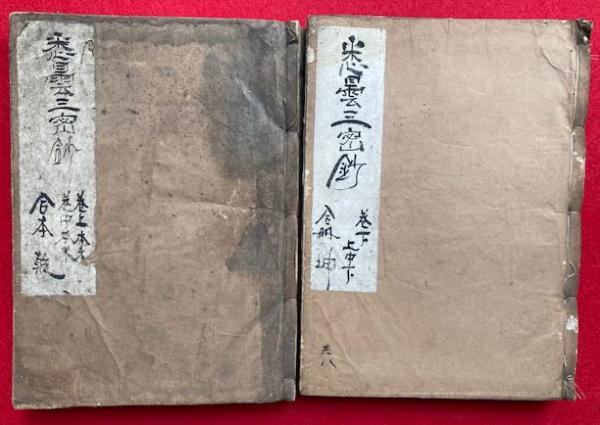 悉曇三密鈔
卷上本末
卷中本末
合本 乾
悉曇三密鈔
卷下
上中下
合冊 坤
共八